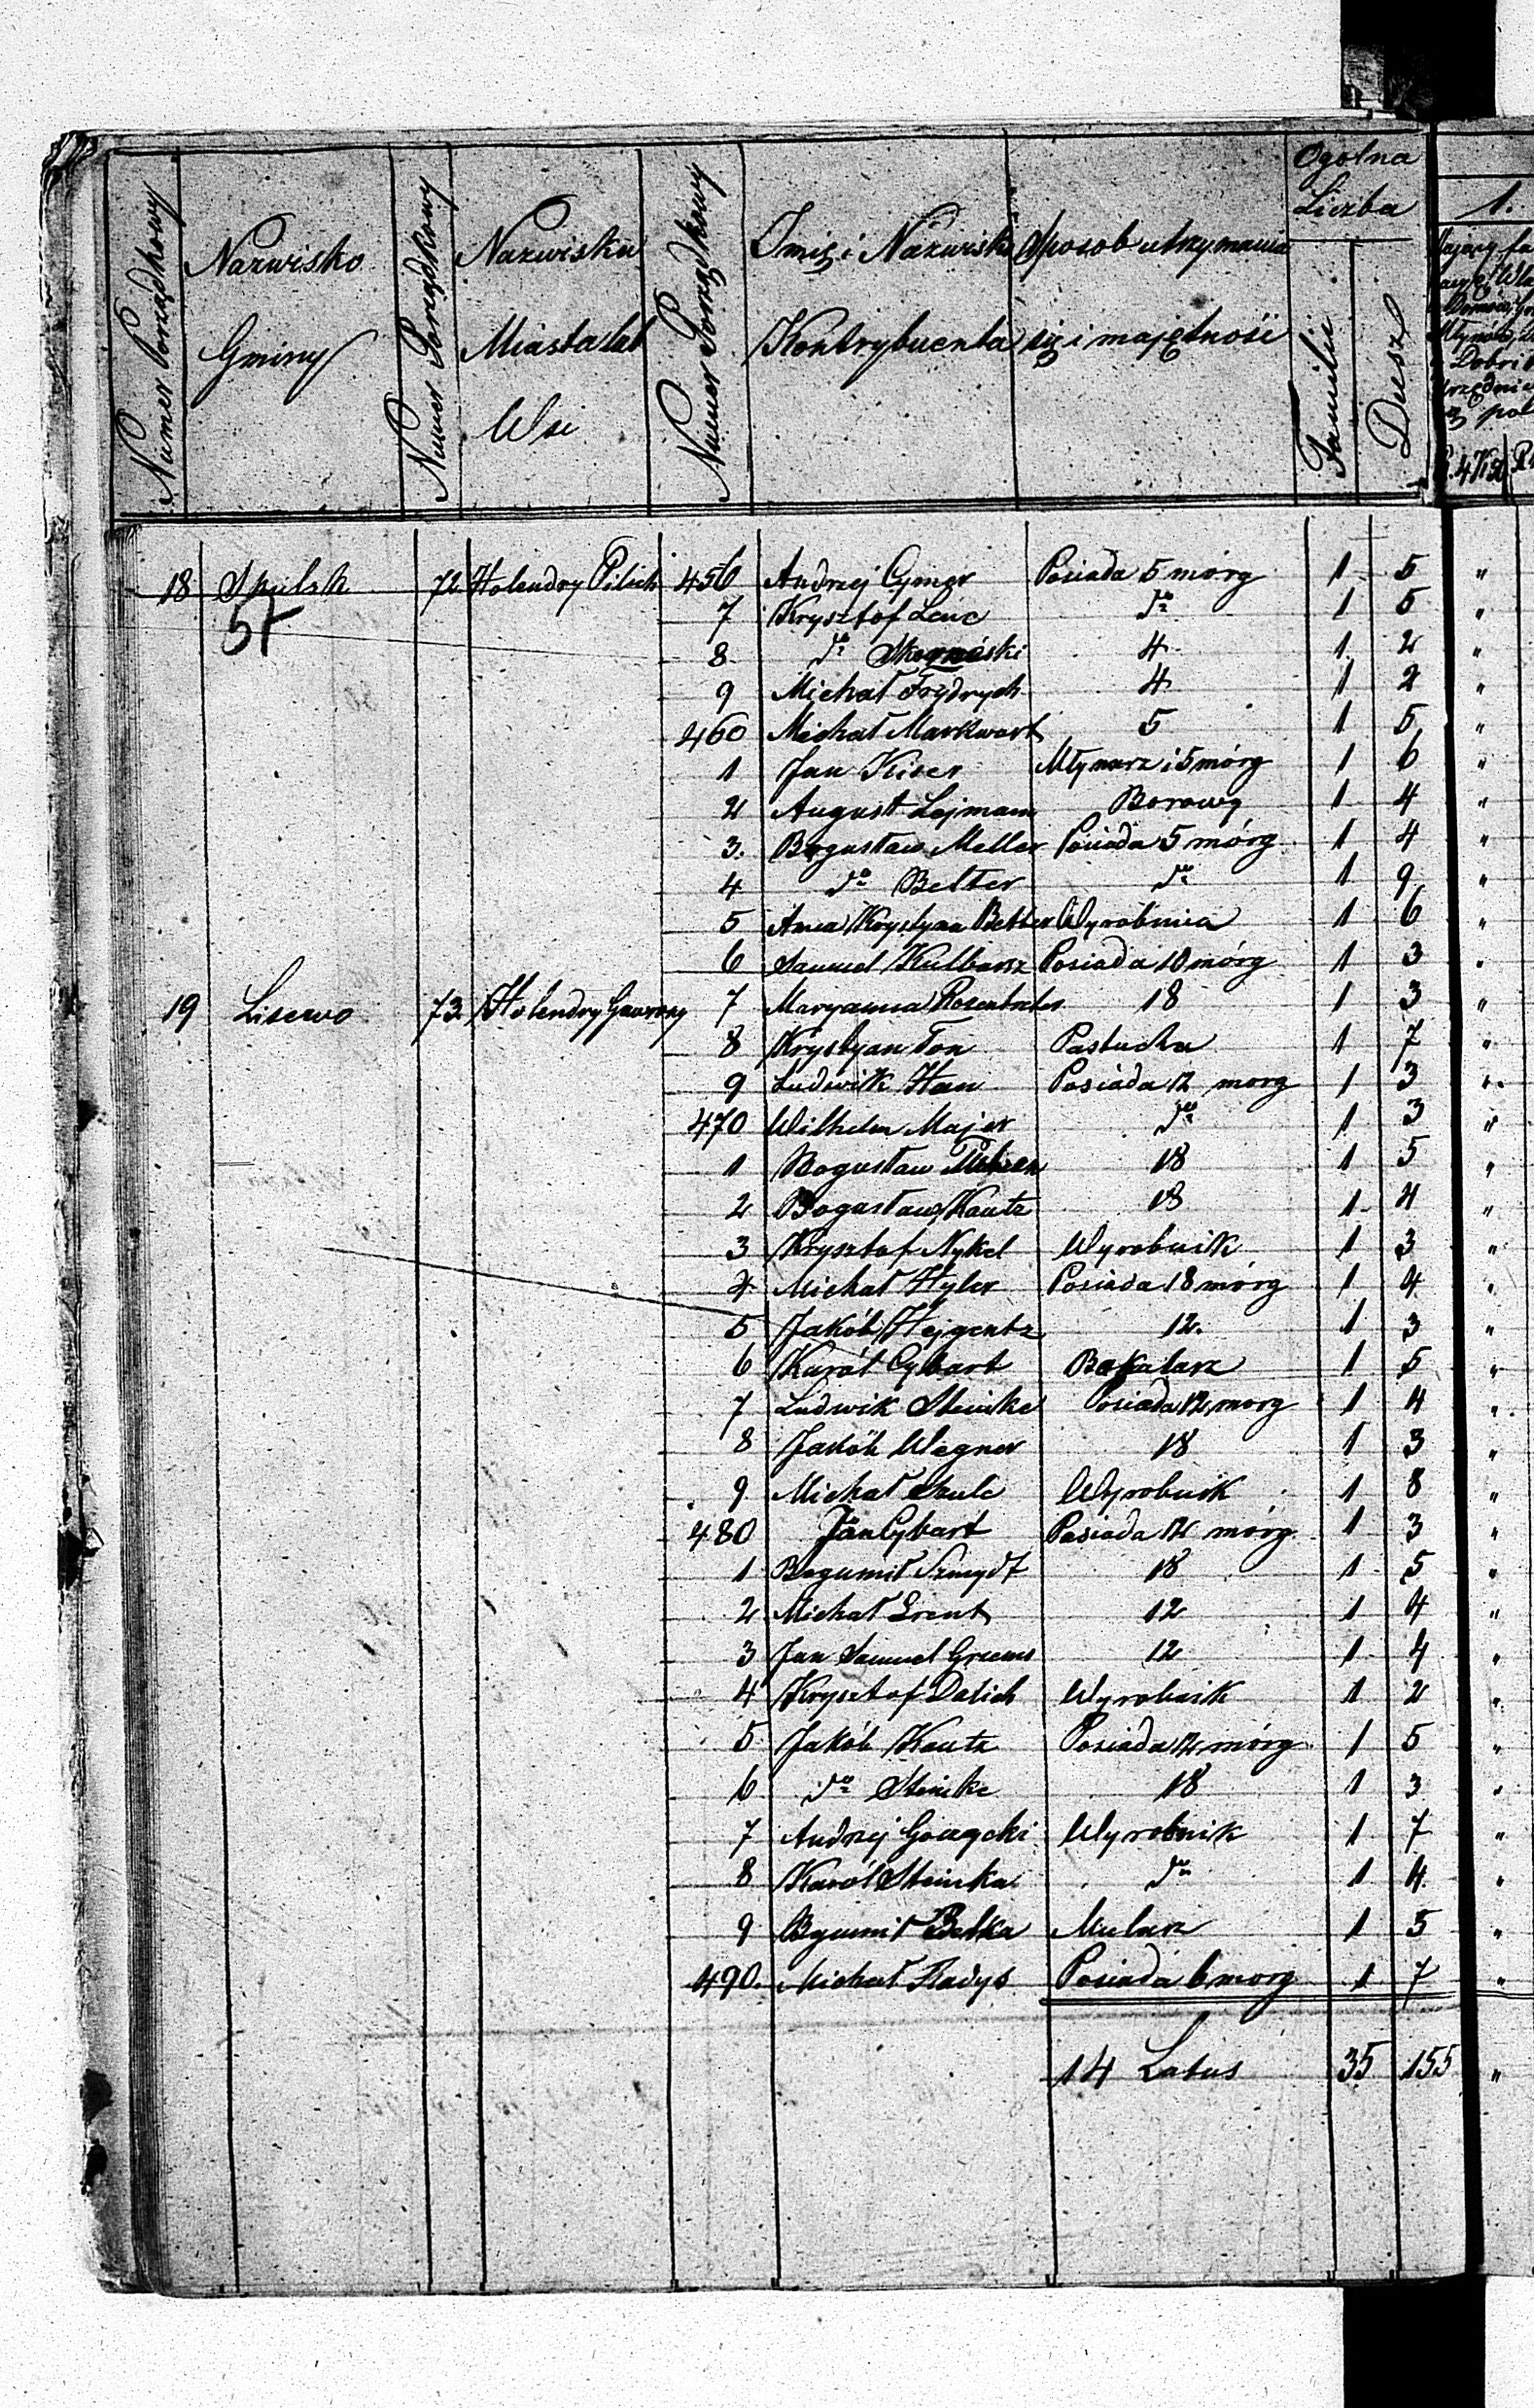 Numer Porządkowy
Nazwisko Gminy
Numer Porządkowy
Nazwiska Miasta lub Wsi
Numer Porządkowy
Imię i Nazwisko Kontrybuenta
Sposob utrzymania się i majętności
Ogolna Liczba
Familii
Dusz
1.
18 Skulsk 72 Holendry Pilich 456 Andrzej Cymer Posiada 5 mórg 1 5 "
57
7 Krysztof Lenc do 1 5 "
8 do 4 1 2 "
9 Michał Frydrych 4 1 2 "
460 Michał Markwart 5 1 5 "
1 Jan Kiser Młynarz i 5 mórg 1 6 "
2 August Lejman Borowy 1 4 "
3. Bogusław Meller Posiada 5 mórg 1 4 "
4 do Belter do 1 9 "
5 Anna Krystyna Belter Wyrobnica 1 6 "
6 Samuel Kulbarsz Posiada 10 mórg 1 3 "
19 Lisewo 73. Holendry Gawrony 7 Maryanna Rosentreter 18 1 3 "
8 Krystyan Ton Pastucha 1 7 "
9 Ludwik Han Posiada 12 morg 1 3 "
470 Wilhelm Majer do 1 3 "
1 Bogusław 18 1 5 "
2 Bogusław Kautz 18 1 4 "
3 Krysztof Nykel Wyrobnik 1 3 "
4 Michał Hyler Posiada 18 mórg 1 4 "
5 Jakób Hejgentz 12. 1 3 "
6 Karól Cybart Bakałarz 1 5 "
7 Ludwik Steinke Posiada 12 morg 1 4 "
8 Jakób Wegner 18 1 3 "
9 Michał Szulc Wyrobnik 1 8 "
480 Jan Cybart Posiada 12 mórg 1 3 "
1 Bogumił Szmydt 18 1 5 "
2 Michał Erent 12 1 4 "
3 Jan Samuel 12 1 4 "
4 Krysztof Dalich Wyrobnik 1 2 "
5 Jakób Kautz Posiada 12 mórg 1 5 "
6 do Steinke 18 1 3 "
7 Andrzej Wyrobnik 1 7 "
8 Karól Steinka do 1 4 "
9 Bogumił Belka Mularz 1 5 "
490. Michał Radys Posiada 6 morg 1 7 "
14 Latus 35 155 "